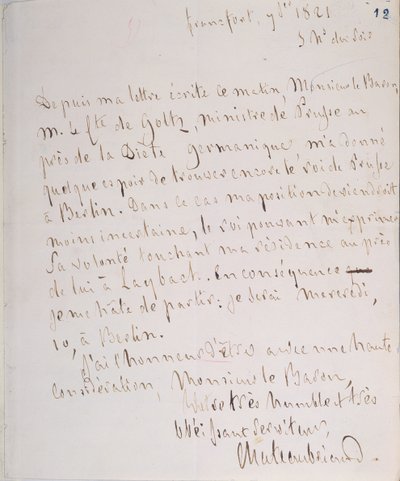 12
francfort, 7 bre 1821
5 h. du soir
Depuis ma lettre écrite ce matin, Monsieur le Baron,
M. le Cte de Goltz, ministre de Prusse au
près de la Diète germanique m'a donné
quelque espoir de trouver encore le roi de Prusse
à Berlin. Dans ce cas ma position deviendroit
moins incertaine, le roi pouvant m'exprimer
sa volonté touchant ma résidence auprès
de lui à Laybach. En conséquence
je me hâte de partir: je serai mercredi,
10, à Berlin.
J'ai l'honneur d'être avec une haute
considération, Monsieur le Baron,
Votre très humble et très
obéissant serviteur,
Chateaubriand.